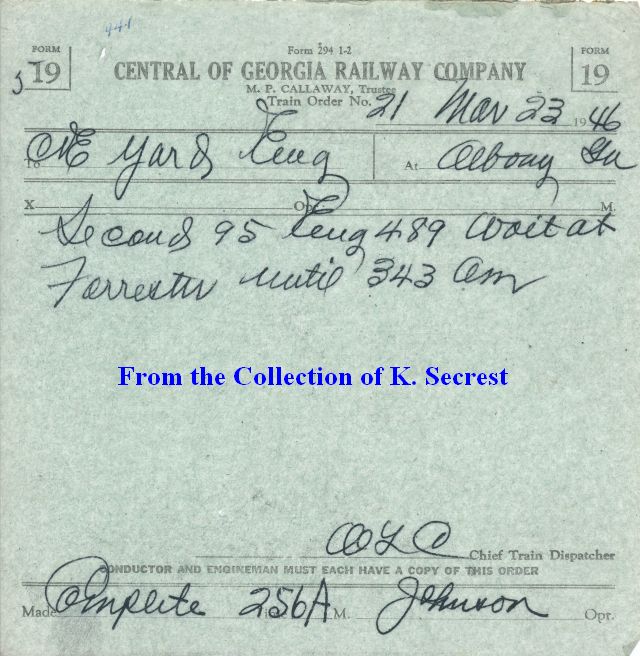 441
FORM 19
Form 294 1-2
FORM 19
5
CENTRAL OF GEORGIA RAILWAY COMPANY
M. P. CALLAWAY, Trustee
Train Order No. 21 Mar 23 1946
To C&E Yard Eng At Albany Ga
X Opr. M.
Second 95 Eng 489 wait at
Forrester until 343 am
From the Collection of K. Secrest
Chief Train Dispatcher
CONDUCTOR AND ENGINEMAN MUST EACH HAVE A COPY OF THIS ORDER
Made Complete 256A M. Johnson Opr.